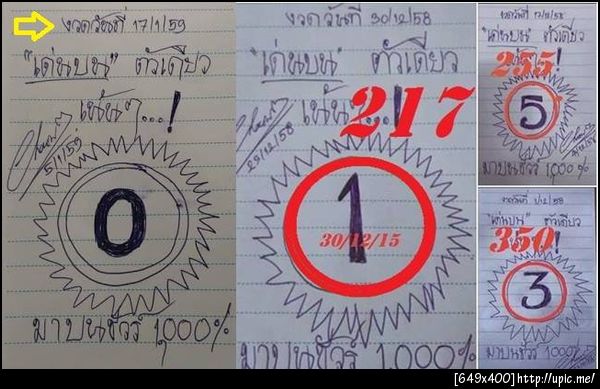 งวดวันที่ 17/1/59
"เด่นบน" ตัวเดียว
เน้นๆ...!
5/1/59
0
มาบนชัวร์ 1,000%
งวดวันที่ 30/12/58
"เด่นบน" ตัวเดียว
เน้นๆ...!
217
25/12/58
1
30/12/15
มาบนชัวร์ 1,000%
งวดวันที่ 17/12/58
"เด่นบน" ตัวเดียว
255
5
มาบนชัวร์ 1,000%
งวดวันที่ 1/12/58
"เด่นบน" ตัวเดียว
350!
3
มาบนชัวร์ 1,000%
[649x400]http://upic.me/